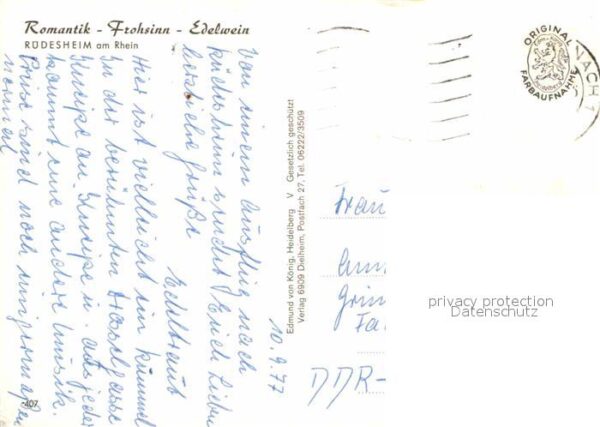 Romantik - Frohsinn - Edelwein
RÜDESHEIM am Rhein
Von einem Ausflug nach
Rüdesheim sendet Euch Lieben
herzliche Grüße
Edeltraut
Hier ist vielleicht ein Rummel
In der berühmten Drosselgasse
Kneipe an Kneipe u. aus jeder
kommt eine andere Musik.
Preise sind noch einigermaßen
normal
10.9.77
407
Edmund von König, Heidelberg V Gesetzlich geschützt
Verlag 6909 Dielheim, Postfach 27, Tel. 06222/3509
ORIGINAL
FARBAUFNAHME
NACH 1
Frau
DDR-
privacy protection
Datenschutz